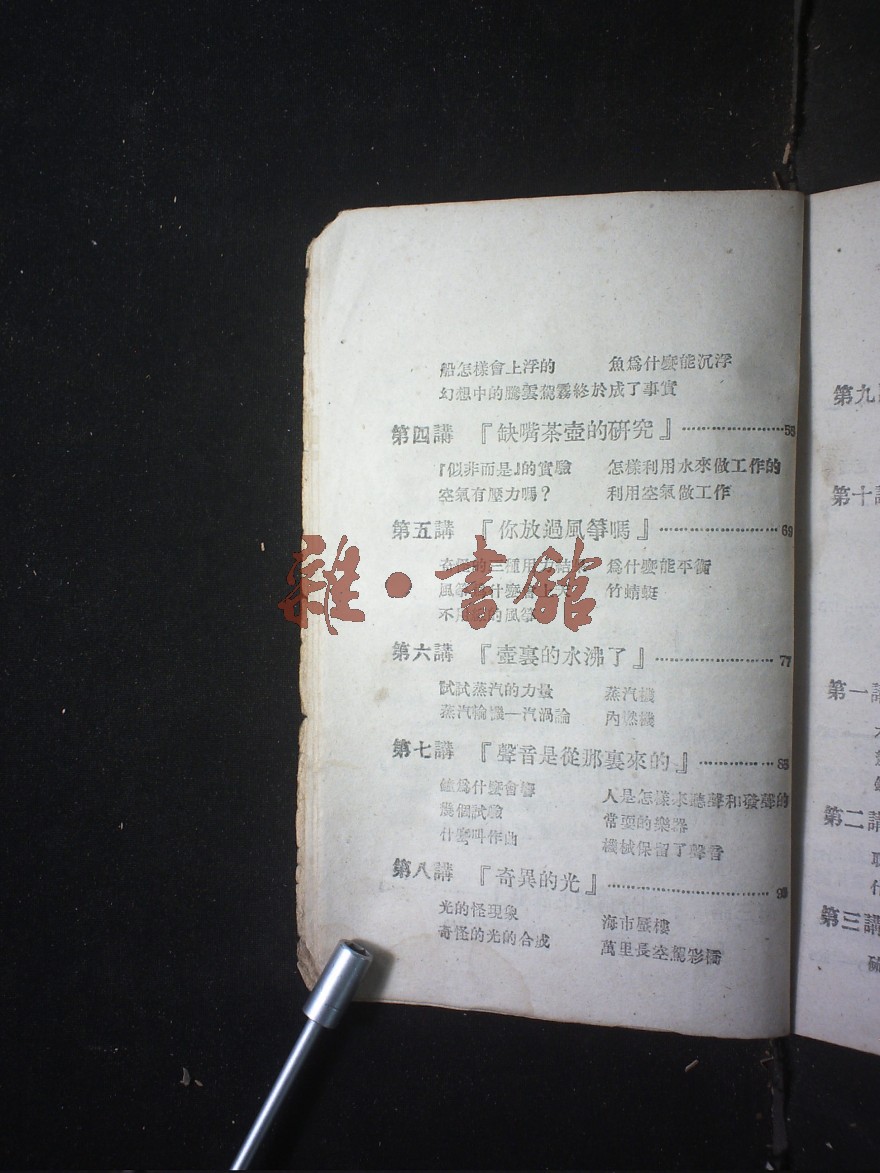 船怎樣會上浮的 魚爲什麽能沉浮
幻想中的騰雲駕霧終於成了事實
第四講 『缺嘴茶壺的研究』 55
『似非而是』的實驗 怎樣利用水來做工作的
空氣有壓力嗎？ 利用空氣做工作
第五講 『你放過風箏嗎』 69
的三種用力 爲什麽能平衡
風箏 什麽 竹蜻蜓
不用 的風箏
第六講 『壺裏的水沸了』 77
試試蒸汽的力量 蒸汽機
蒸汽輪機—汽渦論 內燃機
第七講 『聲音是從那裏來的』 85
爲什麽會響 人是怎樣來聽聲和發聲的
幾個試驗 常耍的樂器
什麽叫作曲 機械保留了聲音
第八講 『奇異的光』 93
光的怪現象 海市蜃樓
奇怪的光的合成 萬里長空駕彩橋
雜·書館
第九
第十講
第一講
第二講
第三講